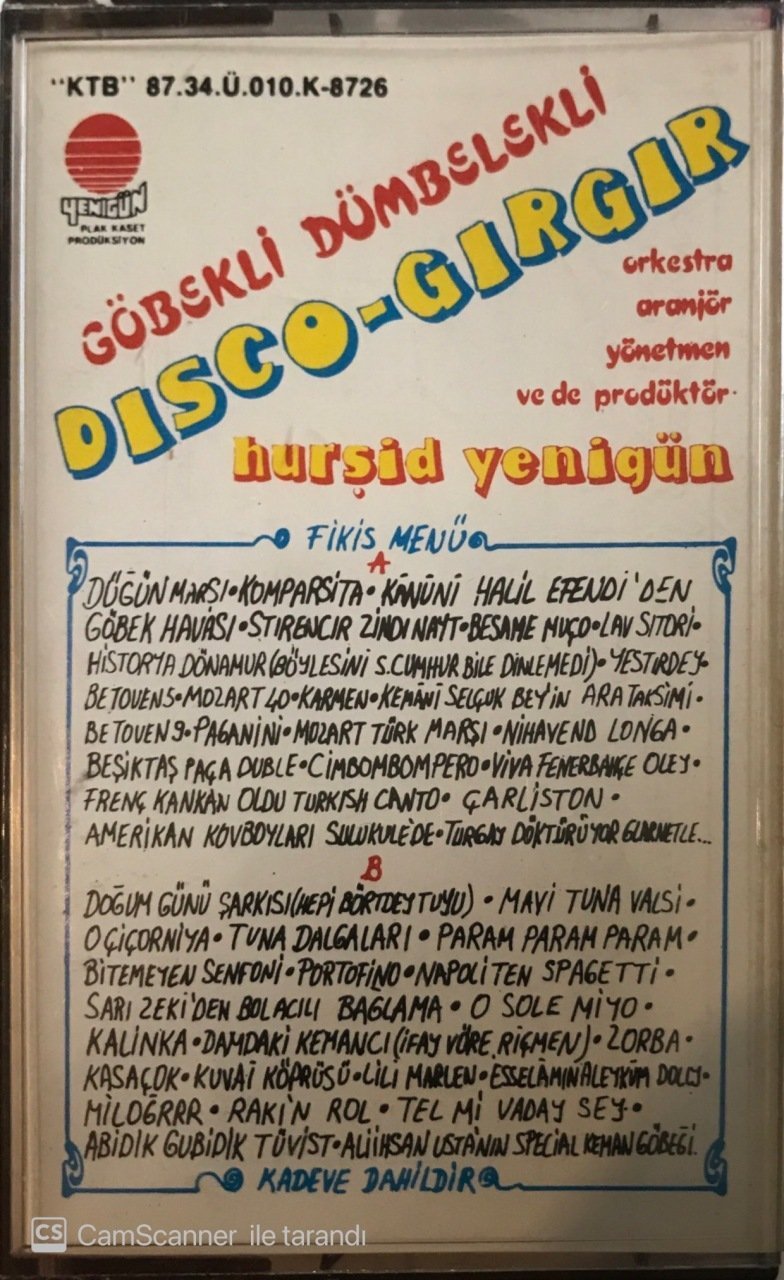 "KTB" 87.34.Ü.010.K-8726
YENİGÜN
PLAK KASET
PRODÜKSİYON
GÖBEKLİ DÜMBELEKLİ
DISCO-GIRGIR
orkestra
aranjör
yönetmen
ve de prodüktör
hurşid yenigün
FİKİS MENÜ
A
DÜĞÜN MARŞI•KOMPARSİTA•KÂNÛNİ HALİL EFENDİ'DEN
GÖBEK HAVASI•STIRENCIR ZİNDI NAYT•BESAME MUÇO•LAV SITORİ•
HİSTORYA DÖNAMUR(BÖYLESİNİ S.CUMHUR BİLE DİNLEMEDİ)•YESTIRDEY•
BETOVEN5•MOZART 40•KARMEN•KEMÂNİ SELÇUK BEY'İN ARA TAKSİMİ•
BETOVEN9•PAGANİNİ•MOZART TÜRK MARŞI•NİHAVEND LONGA•
BEŞİKTAŞ PAÇA DUBLE•CİMBOMBOMPERO•VİVA FENERBAHÇE OLEY•
FRENÇ KANKAN OLDU TURKISH CANTO• ÇARLİSTON•
AMERİKAN KOVBOYLARI SULUKULE'DE•TURGAY DÖKTÜRÜYOR GLARNETLE...
B
DOĞUM GÜNÜ ŞARKISI(HEPİ BÖRTDEY TUYU)• MAVİ TUNA VALSİ•
OÇİÇORNİYA•TUNA DALGALARI•PARAM PARAM PARAM•
BİTEMEYEN SENFONİ•PORTOFİNO•NAPOLİTEN SPAGETTİ•
SARI ZEKİ'DEN BOL ACILI BAĞLAMA•O SOLE MİYO•
KALİNKA•DAMDAKİ KEMANCI(İFAY VÖRE RİÇMEN)•ZORBA•
KASAÇOK•KUVAİ KÖPRÜSÜ•LİLİ MARLEN•ESSELÂMINALEYKÜM DOLÇY•
MİLOĞRRR•RAKI'N ROL•TEL Mİ VADAY SEY•
ABİDİK GUBİDİK TÜVİST•ALİİHSAN USTA'NIN SPECİAL KEMAN GÖBEĞİ.
KADEVE DAHİLDİR
CS CamScanner ile tarandı